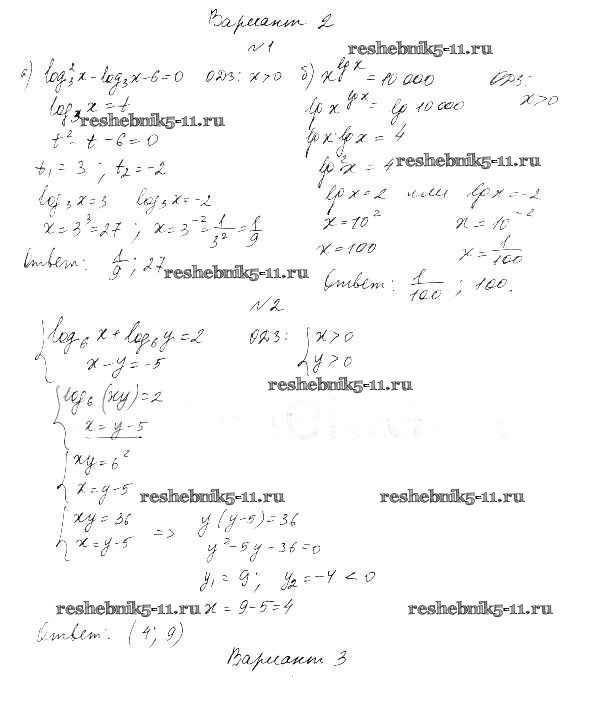 Вариант 2
№1
reshebnik5-11.ru
а) log₃²x - log₃x - 6 = 0 ОДЗ: x > 0
log₃x = t
reshebnik5-11.ru
t² - t - 6 = 0
t₁ = 3 ; t₂ = -2
log₃x = 3 log₃x = -2
x = 3³ = 27 ; x = 3⁻² = 1/3² = 1/9
Ответ: 1/9 ; 27
reshebnik5-11.ru
б) x^lg x = 10 000 ОДЗ: x > 0
lg x^lg x = lg 10 000
lg x · lg x = 4
lg²x = 4
reshebnik5-11.ru
lg x = 2 или lg x = -2
x = 10² x = 10⁻²
x = 100 x = 1/100
Ответ: 1/100 ; 100.
№2
{ log₆ x + log₆ y = 2 ОДЗ: { x > 0
x - y = -5 y > 0
reshebnik5-11.ru
{ log₆ (xy) = 2
x = y - 5
{ xy = 6²
x = y - 5
reshebnik5-11.ru reshebnik5-11.ru
{ xy = 36 => y (y - 5) = 36
x = y - 5 y² - 5y - 36 = 0
y₁ = 9 ; y₂ = -4 < 0
reshebnik5-11.ru x = 9 - 5 = 4 reshebnik5-11.ru
Ответ: (4; 9)
Вариант 3